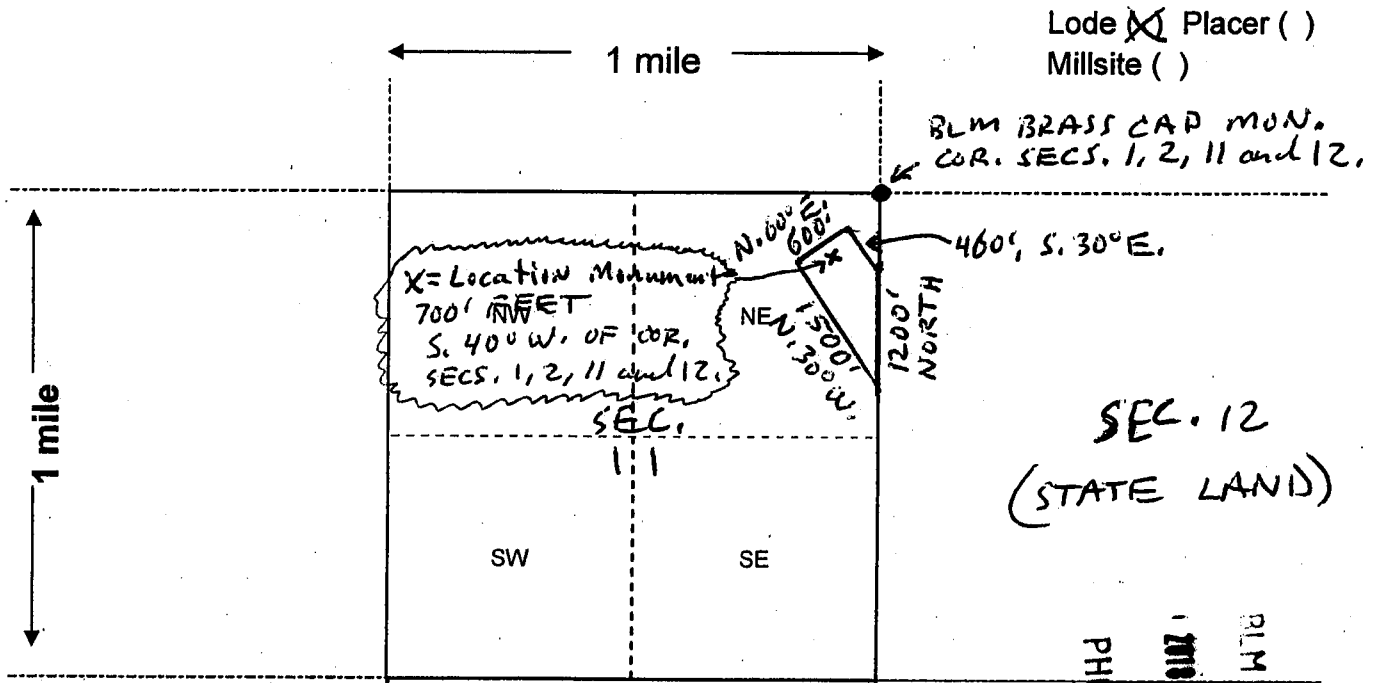 Lode (X) Placer ( )
Millsite ( )
1 mile
BLM BRASS CAP MON.
COR. SECS. 1, 2, 11 and 12.
N. 60° E.
600'
460', S. 30° E.
X = Location Monument
700' FEET
NW
S. 40° W. OF COR.
SECS. 1, 2, 11 and 12.
NE
1500'
N. 30° W.
1200'
NORTH
1 mile
SEC.
11
SEC. 12
(STATE LAND)
SW
SE
BLM
PH